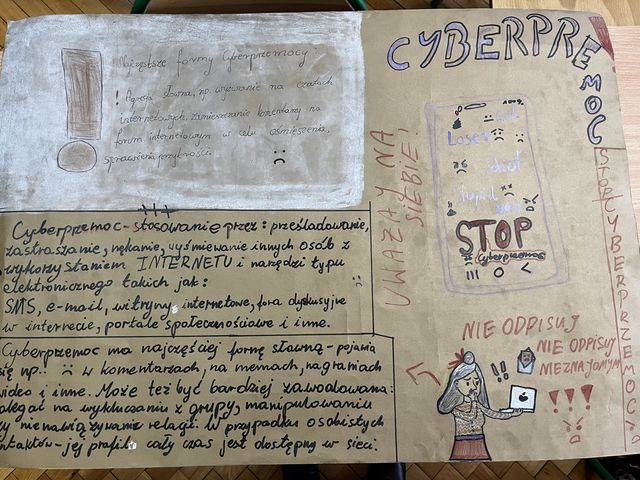 Najczęstsze formy Cyberprzemocy:
! Agresja słowna, np. wyzywanie na czatach
internetowych, zamieszczanie komentarzy na
forum internetowym w celu ośmieszenia,
sprawienia przykrości.
!!!
Cyberprzemoc - stosowanie przez: prześladowanie,
zastraszanie, nękanie, wyśmiewanie innych osób z
wykorzystaniem INTERNETU i narzędzi typu
elektronicznego takich jak:
SMS, e-mail, witryny internetowe, fora dyskusyjne
w internecie, portale społecznościowe i inne.
Cyberprzemoc ma najczęściej formę słowną - pojawia
się np.: w komentarzach, na memach, nagraniach
wideo i inne. Może też być bardziej zawoalowana:
polegać na wykluczaniu z grupy, manipulowaniu
czy nienawiązywaniu relacji. W przypadku osobistych
kontaktów - jej profil cały czas jest dostępny w sieci.
CYBERPRZEMOC
UWAŻAJ NA
SIEBIE!
100%
Loser
idiot
stupid
STOP
Cyberprzemoc
STOP CYBERPRZEMOC
NIE ODPISUJ
NIE ODPISUJ
NIEZNAJOMYM
!!
!!!